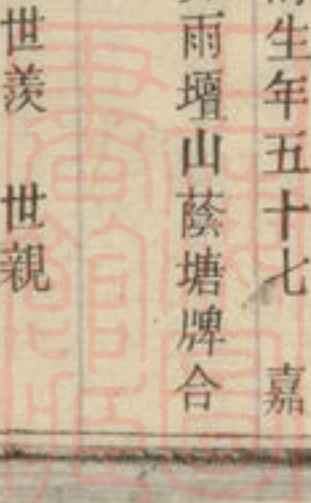 生年五十七 嘉
雨壇山蔭塘牌合
世羨 世親